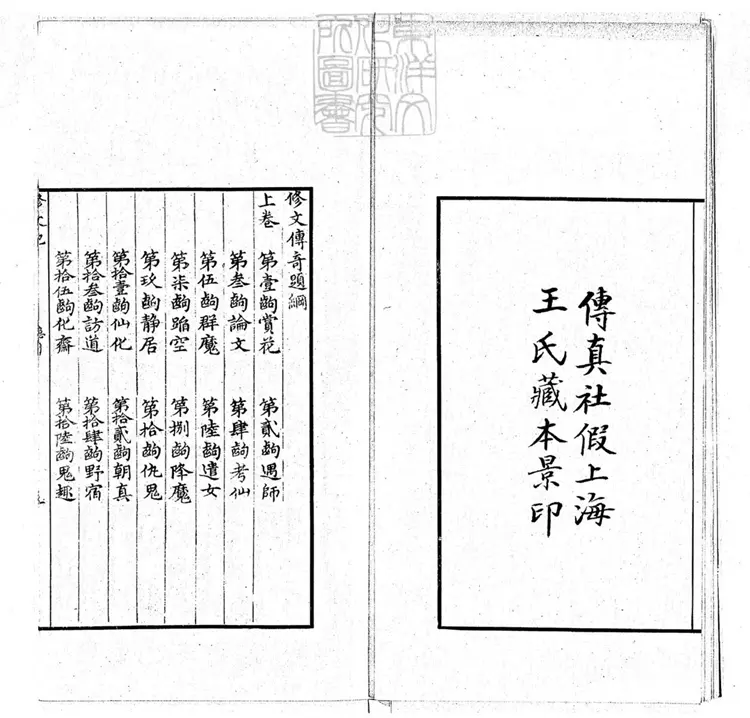 東洋文
化研究
所圖書
傳真社假上海
王氏藏本景印
修文傳奇題綱
上卷
第壹齣賞花 第貳齣遇師
第叁齣論文 第肆齣考仙
第伍齣群魔 第陸齣遣女
第柒齣蹈空 第捌齣降魔
第玖齣靜居 第拾齣仇鬼
第拾壹齣仙化 第拾貳齣朝真
第拾叁齣訪道 第拾肆齣野宿
第拾伍齣化齋 第拾陸齣鬼趣